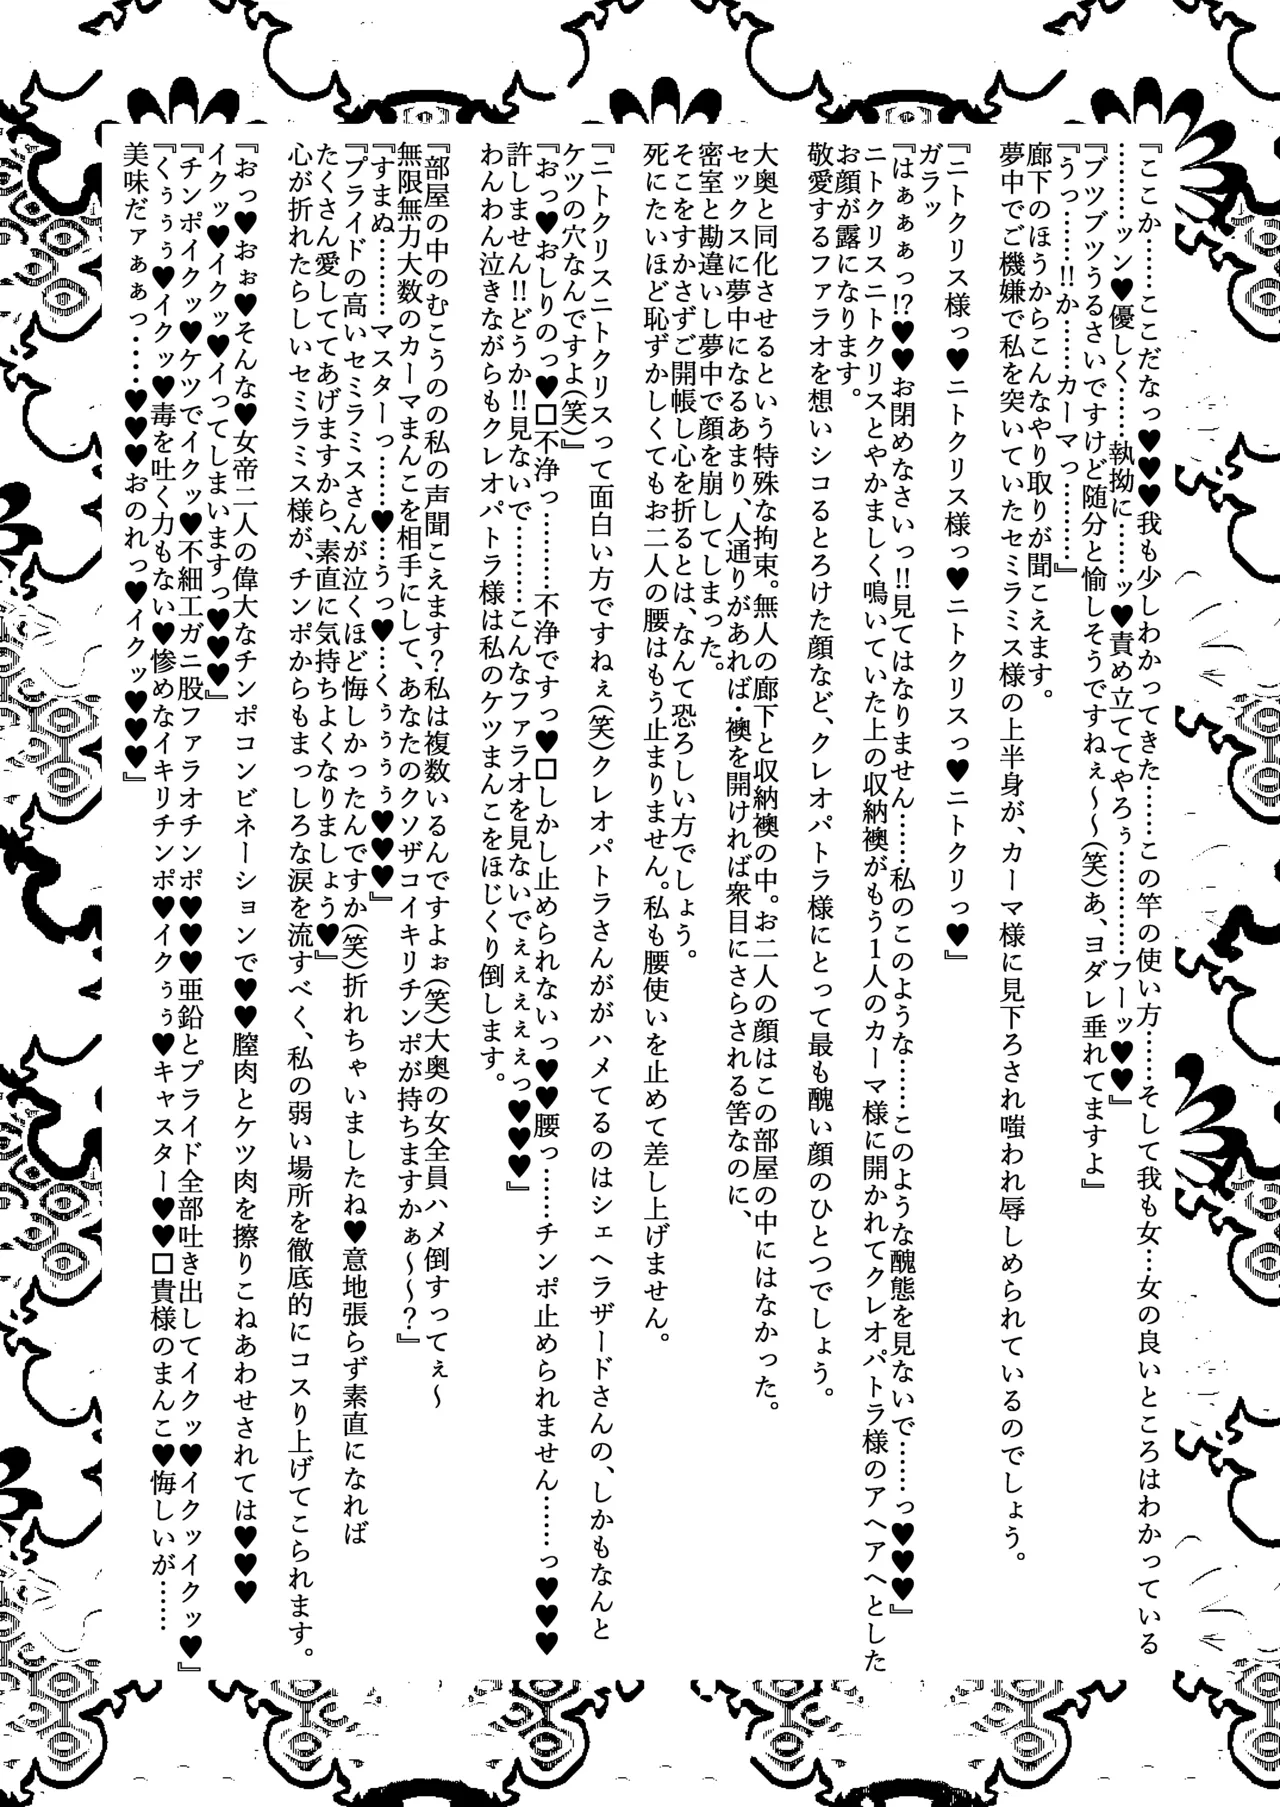 『ここか……ここだなっ♥♥♥我も少しわかってきた……この竿の使い方……そして我も女…女の良いところはわかっている
………ッン♥優しく……執拗に……ッ♥責め立ててやろぅ…………フーッ♥♥』
『ブツブツうるさいですけど随分と愉しそうですねぇ～～(笑)あ、ヨダレ垂れてますよ』
『うっ……!!か……カーマっ………』
廊下のほうからこんなやり取りが聞こえます。
夢中でご機嫌で私を突いていたセミラミス様の上半身が、カーマ様に見下ろされ嗤われ辱しめられているのでしょう。
『ニトクリス様っ♥ニトクリス様っ♥ニトクリスっ♥ニトクリっ♥』
ガラッ
『はぁぁぁっ!?♥♥お閉めなさいっ!!見てはなりません……私のこのような……このような醜態を見ないで……っ♥♥♥』
ニトクリスニトクリスとやかましく鳴いていた上の収納襖がもう1人のカーマ様に開かれてクレオパトラ様のアヘアヘとした
お顔が露になります。
敬愛するファラオを想いシコるとろけた顔など、クレオパトラ様にとって最も醜い顔のひとつでしょう。
大奥と同化させるという特殊な拘束。無人の廊下と収納襖の中。お二人の顔はこの部屋の中にはなかった。
セックスに夢中になるあまり、人通りがあれば・襖を開ければ衆目にさらされる筈なのに、
密室と勘違いし夢中で顔を崩してしまった。
そこをすかさずご開帳し心を折るとは、なんて恐ろしい方でしょう。
死にたいほど恥ずかしくてもお二人の腰はもう止まりません。私も腰使いを止めて差し上げません。
『ニトクリスニトクリスって面白い方ですねぇ(笑)クレオパトラさんががハメてるのはシェヘラザードさんの、しかもなんと
ケツの穴なんですよ(笑)』
『おっ♥おしりのっ♥□不浄っ………不浄ですっ♥□しかし止められないっ♥♥腰っ……チンポ止められません……っ♥♥♥
許しません!!どうか!!見ないで………こんなファラオを見ないでぇぇぇぇぇっ♥♥♥』
わんわん泣きながらもクレオパトラ様は私のケツまんこをほじくり倒します。
『部屋の中のむこうのの私の声聞こえます?私は複数いるんですよぉ(笑)大奥の女全員ハメ倒すってぇ～
無限無力大数のカーマまんこを相手にして、あなたのクソザコイキリチンポが持ちますかぁ～～?』
『すまぬ………マスターっ……♥…うっ♥…くぅぅぅぅ♥♥♥』
『プライドの高いセミラミスさんが泣くほど悔しかったんですか(笑)折れちゃいましたね♥意地張らず素直になれば
たくさん愛しててあげますから、素直に気持ちよくなりましょう♥』
心が折れたらしいセミラミス様が、チンポからもまっしろな涙を流すべく、私の弱い場所を徹底的にコスり上げてこられます。
『おっ♥おぉ♥そんな♥女帝二人の偉大なチンポコンビネーションで♥♥膣肉とケツ肉を擦りこねあわせされては♥♥♥
イクッ♥イクッ♥イってしまいますっ♥♥♥』
『チンポイクッ♥ケツでイクッ♥不細工ガニ股ファラオチンポ♥♥♥亜鉛とプライド全部吐き出してイクッ♥イクッイクッ♥』
『くぅぅぅ♥イクッ♥毒を吐く力もない♥惨めなイキリチンポ♥イクぅぅ♥キャスター♥♥□貴様のまんこ♥悔しいが……
美味だァぁぁっ……♥♥♥おのれっ♥イクッ♥♥♥』